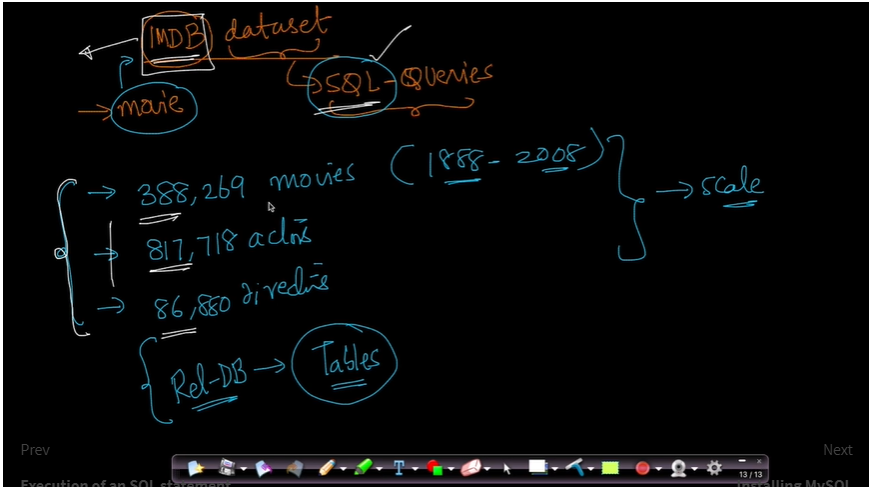 IMDB dataset
SQL-Queries
movie
388,269 movies (1888-2008)
scale
817,718 actors
86,880 directors
Rel-DB → Tables
Prev
Next
13 / 13
Execution of an SQL statement
Installing MySQL